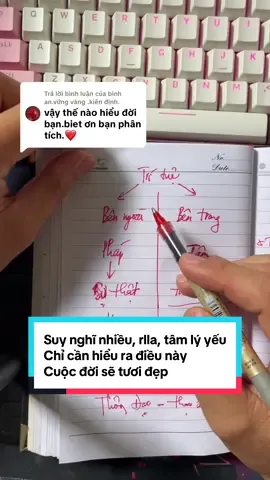 Trả lời bình luận của bình
an.vững vàng .kiên định.
vậy thế nào hiểu đời
bạn.biet ơn bạn phân
tích.❤️
Nó.
Date.
Trí tuệ
Bên ngoài
Bên trong
Pháp
Sự thật
Suy nghĩ nhiều, rlla, tâm lý yếu
Chỉ cần hiểu ra điều này
Cuộc đời sẽ tươi đẹp